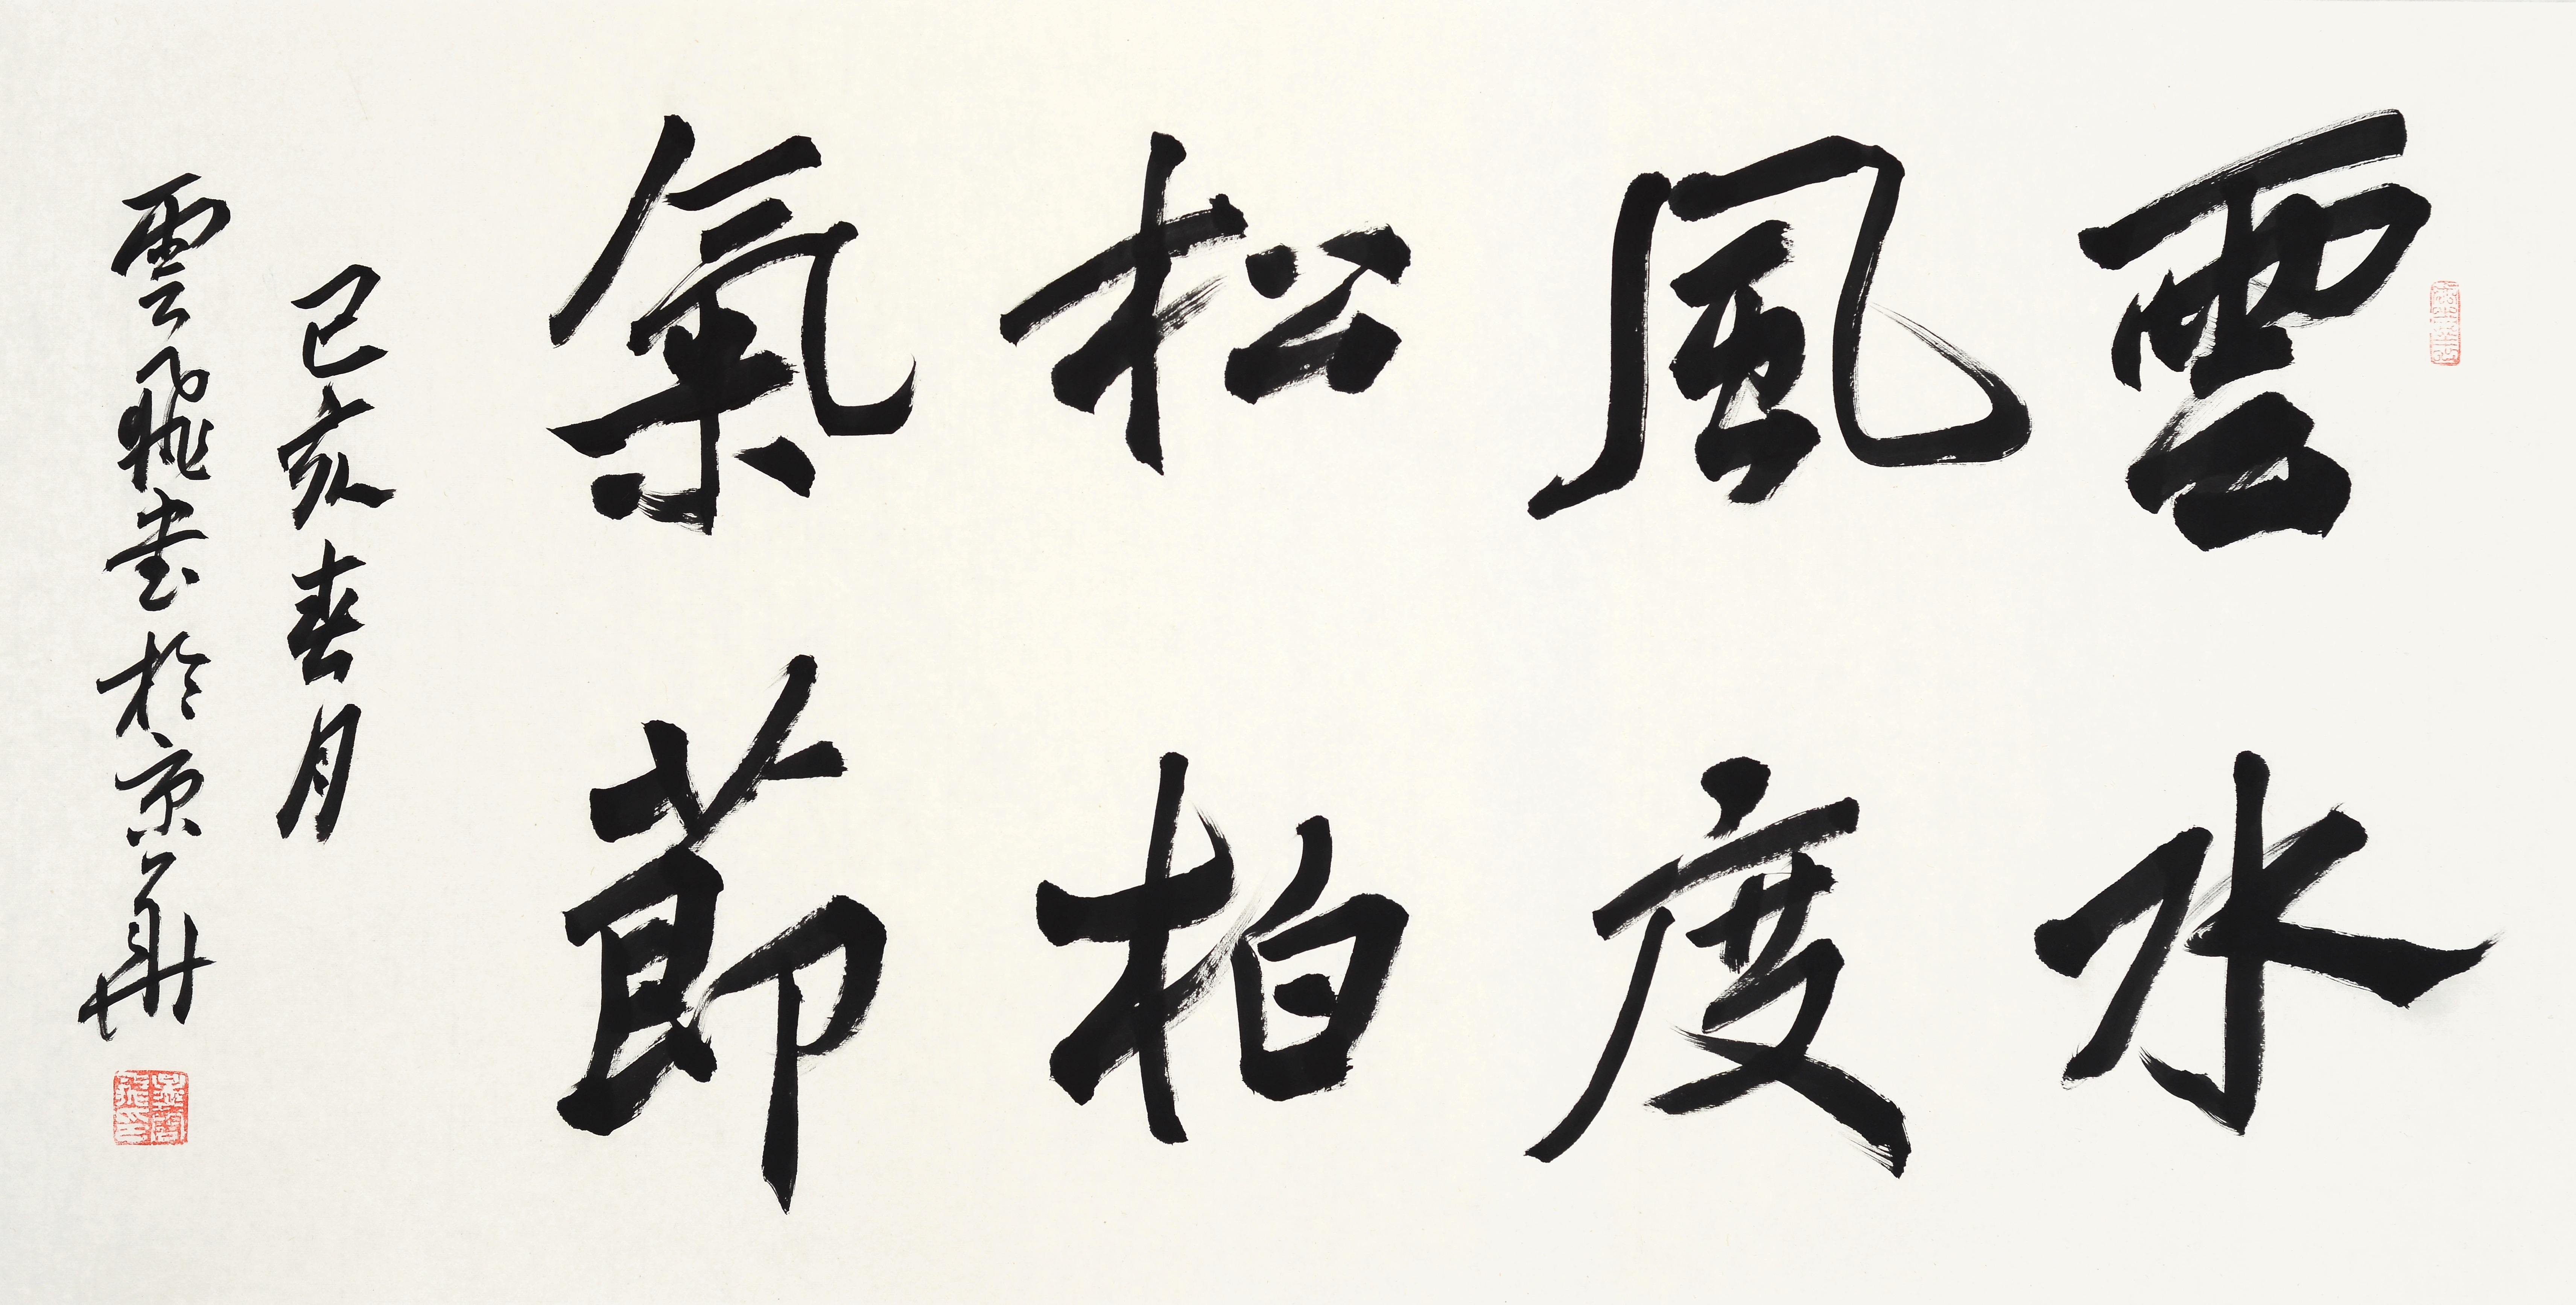 雲水
風度
松柏
氣節
己亥春月
雲飛書於京華